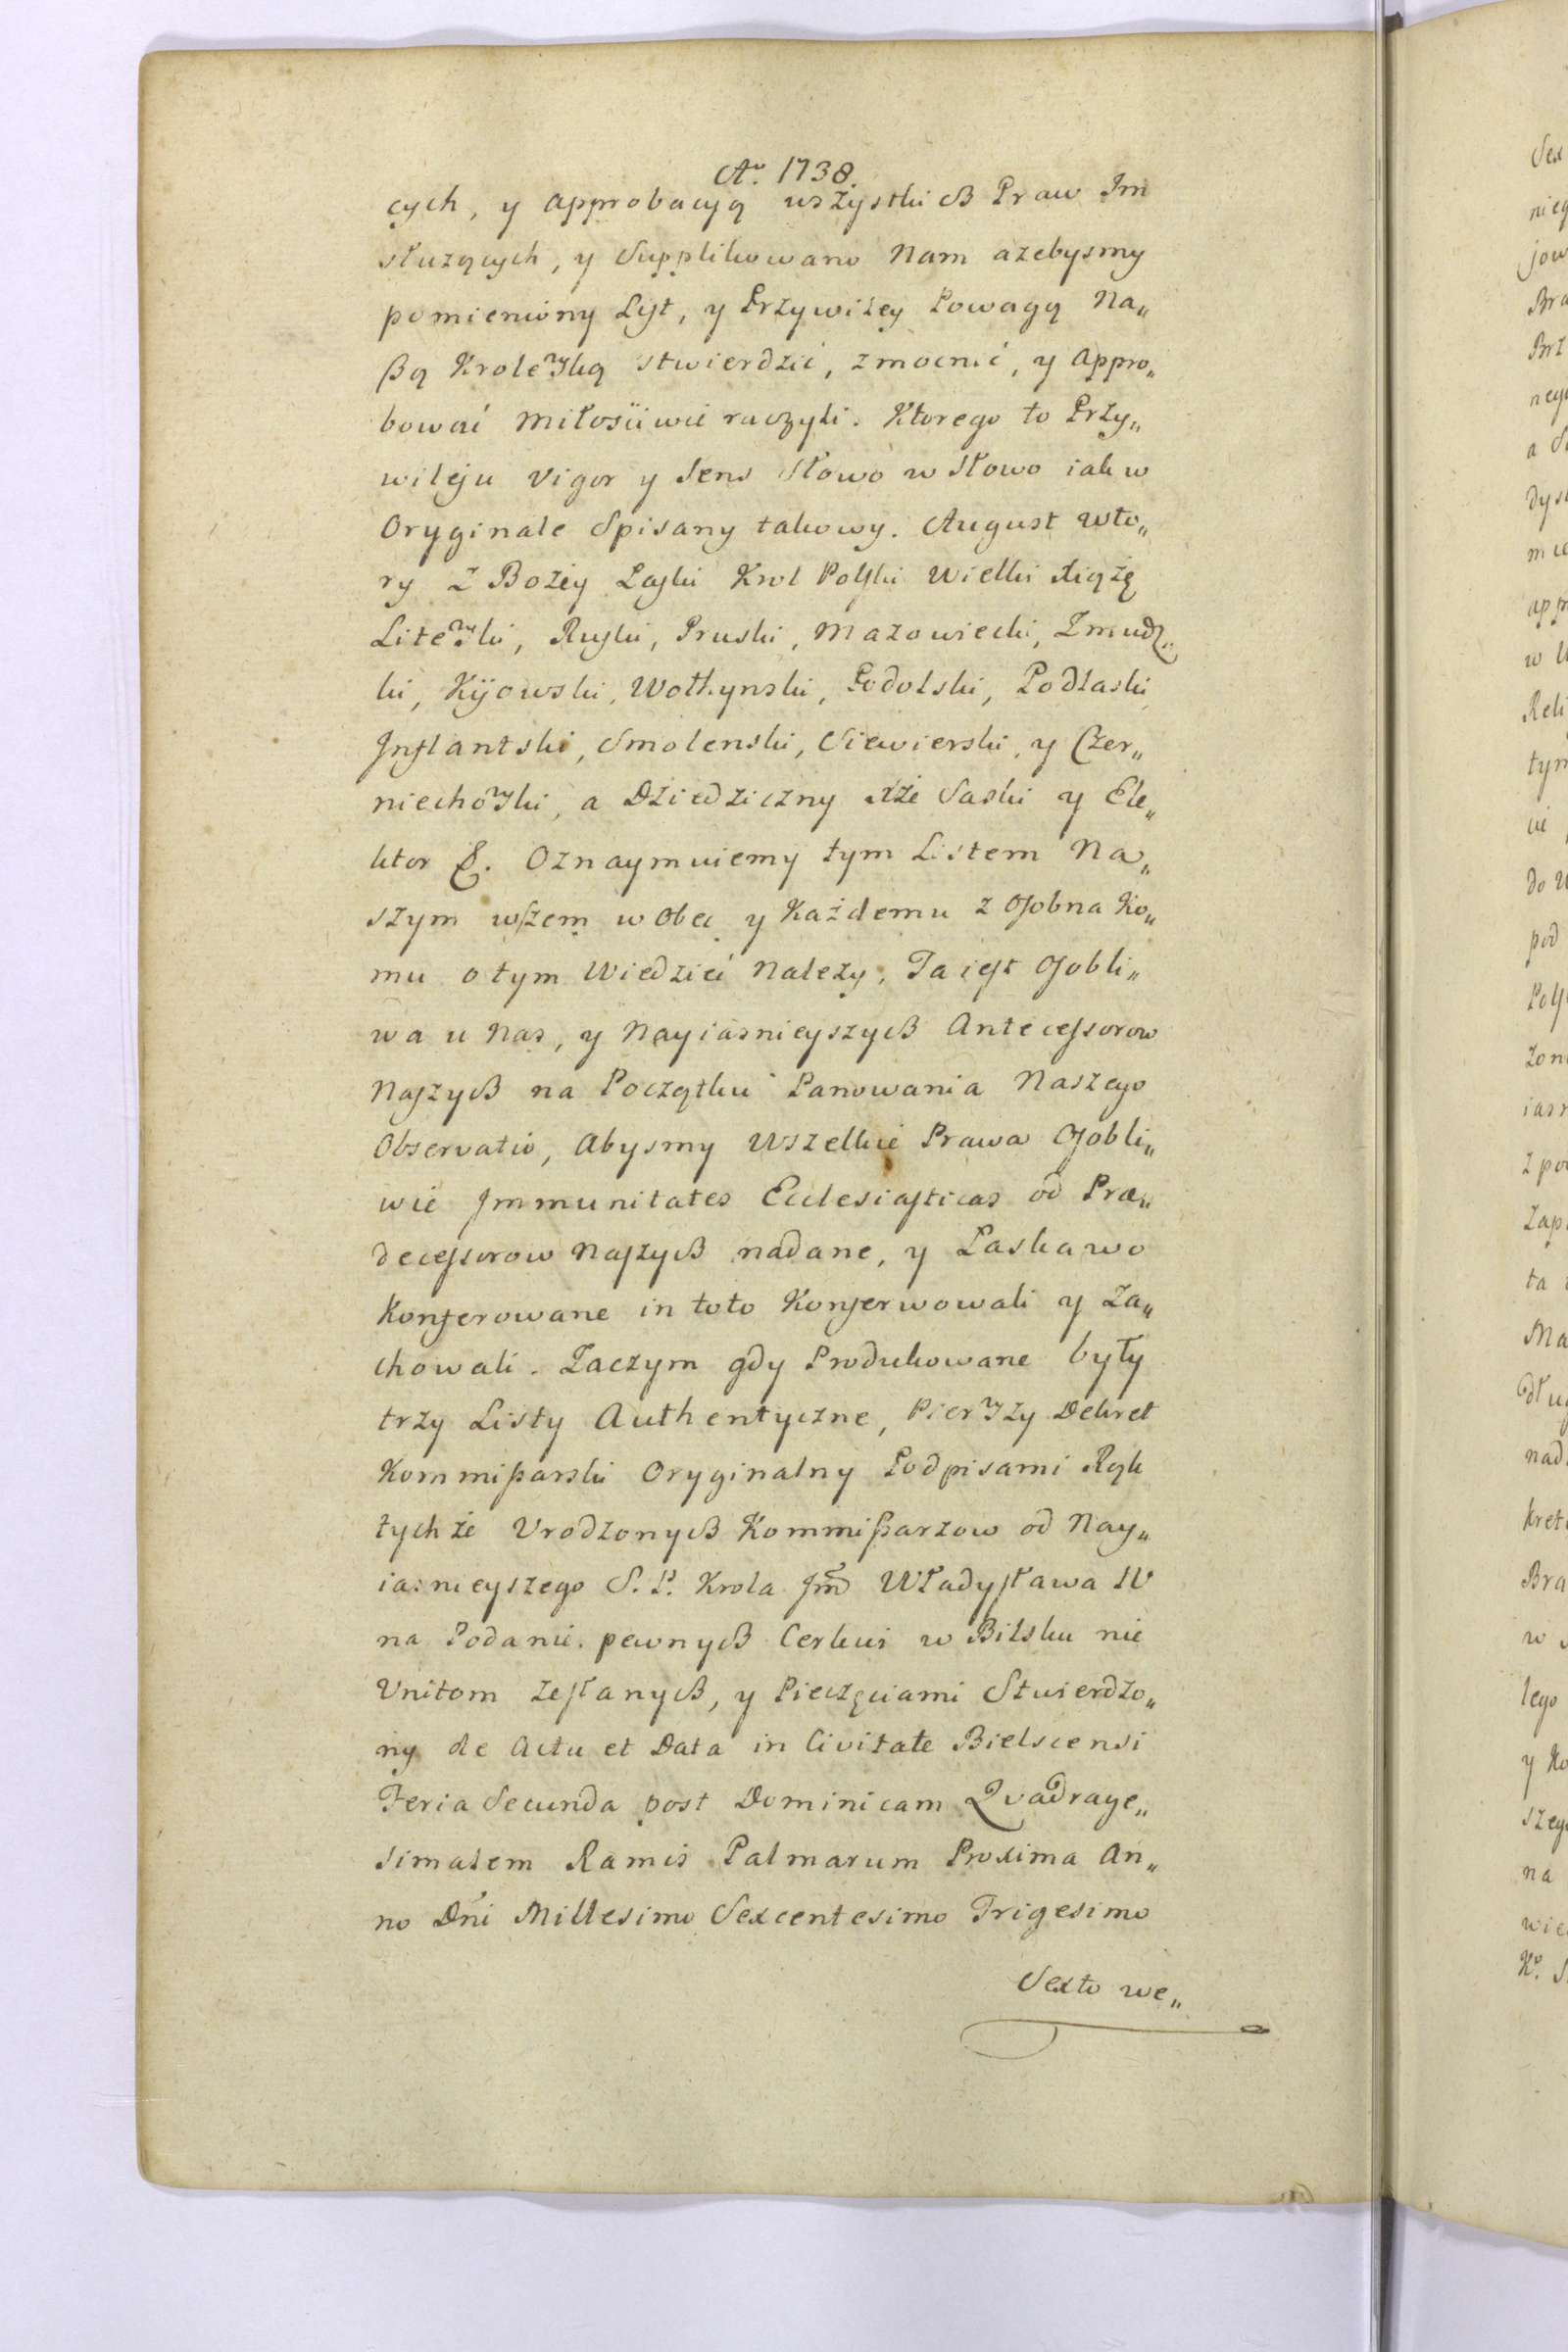 Aº. 1738.
cych, y approbacyą wszystkich Praw Im
służących, y Supplikowano Nam azebysmy
pomieniony Lyst, y Przywiley Powagą Na„
ßą Krolewską stwierdzić, zmocnić, y appro„
bować Miłościwie raczyli. Ktorego to Przy„
wileju Vigor y Sens Słowo w Słowo iak w
Oryginale Spisany takowy. August wto„
ry Z Bożey Łaski Krol Polski Wielki Xiążę
Litewski, Ruski, Pruski, Mazowiecki, Zmudz„
ki, Kijowski, Wołhynski, Podolski, Podlaski
Inflantski, Smolenski, Siewierski, y Czer„
niechowski, a Dziedziczny Xże Saski y Ele„
ktor &. Oznaymuiemy tym Listem Na„
szym wszem wobec y Każdemu z Osobna Ko„
mu o tym Wiedzieć Nalezy, Ta iest Osobli„
wa u Nas, y Nayiasnieyszych Antecessorow
Naszych na Początku Panowania Naszego
Observatio, Abysmy Wszelkie Prawa Osobli„
wie Immunitates Ecclesiasticas od Præ„
decessorow Naszych nadane, y Łaskawo
Konferowane in toto Konserwowali y Za„
chowali. Zaczym gdy Produkowane były
trzy Listy Authentyczne, Pierwszy Dekret
Kommißarski Oryginalny Podpisami Rąk
tychże Vrodzonych Kommißarzow od Nay„
iasnieyszego S. P. Krola Jm̃ Władysława IV
na Podanie pewnych Cerkwi w Bilsku nie
Vnitom zesłanych, y Pieczęciami Stwierdzo„
ny de Actu et Data in Civitate Bielscensi
Feria Secunda post Dominicam Quadrage„
simalem Ramis Palmarum Proxima An„
no Dñi Millesimo Sexcentesimo Trigesimo
Sexto we„